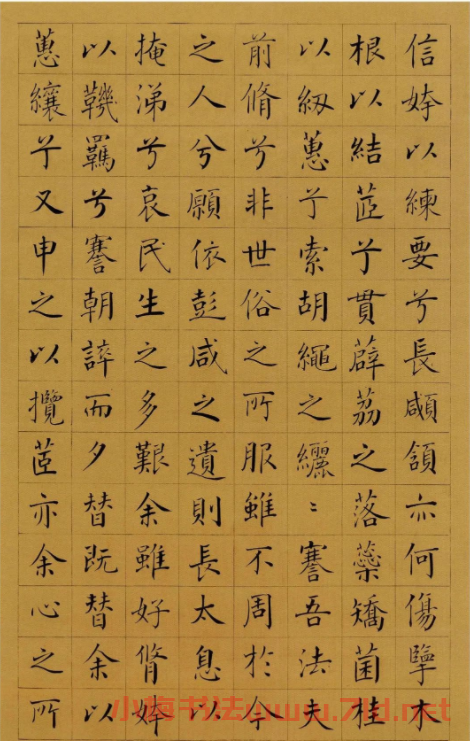 信姱以練要兮長顑頷亦何傷擥木
根以結茝兮貫薜荔之落蘂矯菌桂
以紉蕙兮索胡繩之纚〻謇吾法夫
前脩兮非世俗之所服雖不周於今
之人兮願依彭咸之遺則長太息以
掩涕兮哀民生之多艱余雖好脩姱
以鞿羈兮謇朝誶而夕替既替余以
蕙纕兮又申之以攬茝亦余心之所
书法